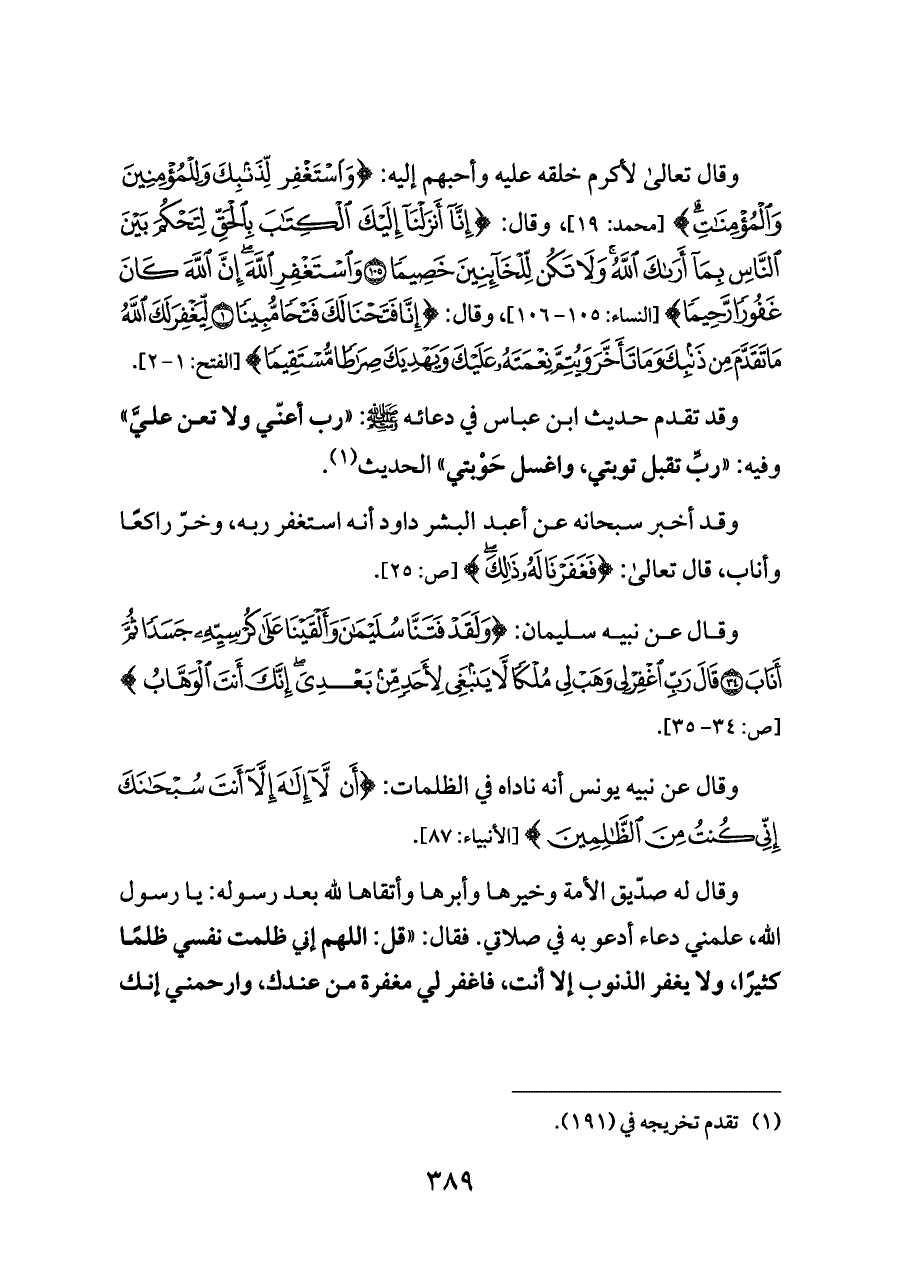 وقال تعالىٰ لأكرم خلقه عليه وأحبهم إليه: ﴿وَٱسۡتَغۡفِرۡ لِذَنۢبِكَ وَلِلۡمُؤۡمِنِينَ
وَٱلۡمُؤۡمِنَٰتِۗ﴾ [محمد: ١٩]، وقال: ﴿إِنَّآ أَنزَلۡنَآ إِلَيۡكَ ٱلۡكِتَٰبَ بِٱلۡحَقِّ لِتَحۡكُمَ بَيۡنَ
ٱلنَّاسِ بِمَآ أَرَىٰكَ ٱللَّهُۚ وَلَا تَكُن لِّلۡخَآئِنِينَ خَصِيمٗا ١٠٥ وَٱسۡتَغۡفِرِ ٱللَّهَۖ إِنَّ ٱللَّهَ كَانَ
غَفُورٗا رَّحِيمٗا﴾ [النساء: ١٠٥-١٠٦]، وقال: ﴿إِنَّا فَتَحۡنَا لَكَ فَتۡحٗا مُّبِينٗا ١ لِّيَغۡفِرَ لَكَ ٱللَّهُ
مَا تَقَدَّمَ مِن ذَنۢبِكَ وَمَا تَأَخَّرَ وَيُتِمَّ نِعۡمَتَهُۥ عَلَيۡكَ وَيَهۡدِيَكَ صِرَٰطٗا مُّسۡتَقِيمٗا﴾ [الفتح: ١-٢].
وقد تقدم حديث ابن عباس في دعائه ﷺ: «رب أعنّي ولا تعن عليَّ»
وفيه: «ربِّ تقبل توبتي، واغسل حَوْبتي» الحديث(١).
وقد أخبر سبحانه عن أعبد البشر داود أنه استغفر ربه، وخرّ راكعًا
وأناب، قال تعالىٰ: ﴿فَغَفَرۡنَا لَهُۥ ذَٰلِكَۖ﴾ [ص: ٢٥].
وقال عن نبيه سليمان: ﴿وَلَقَدۡ فَتَنَّا سُلَيۡمَٰنَ وَأَلۡقَيۡنَا عَلَىٰ كُرۡسِيِّهِۦ جَسَدٗا ثُمَّ
أَنَابَ ٣٤ قَالَ رَبِّ ٱغۡفِرۡ لِي وَهَبۡ لِي مُلۡكٗا لَّا يَنۢبَغِي لِأَحَدٖ مِّنۢ بَعۡدِيٓۖ إِنَّكَ أَنتَ ٱلۡوَهَّابُ﴾
[ص: ٣٤-٣٥].
وقال عن نبيه يونس أنه ناداه في الظلمات: ﴿أَن لَّآ إِلَٰهَ إِلَّآ أَنتَ سُبۡحَٰنَكَ
إِنِّي كُنتُ مِنَ ٱلظَّٰلِمِينَ﴾ [الأنبياء: ٨٧].
وقال له صدّيق الأمة وخيرها وأبرها وأتقاها لله بعد رسوله: يا رسول
الله، علمني دعاء أدعو به في صلاتي. فقال: «قل: اللهم إني ظلمت نفسي ظلمًا
كثيرًا، ولا يغفر الذنوب إلا أنت، فاغفر لي مغفرة من عندك، وارحمني إنك
(١) تقدم تخريجه في (١٩١).
٣٨٩